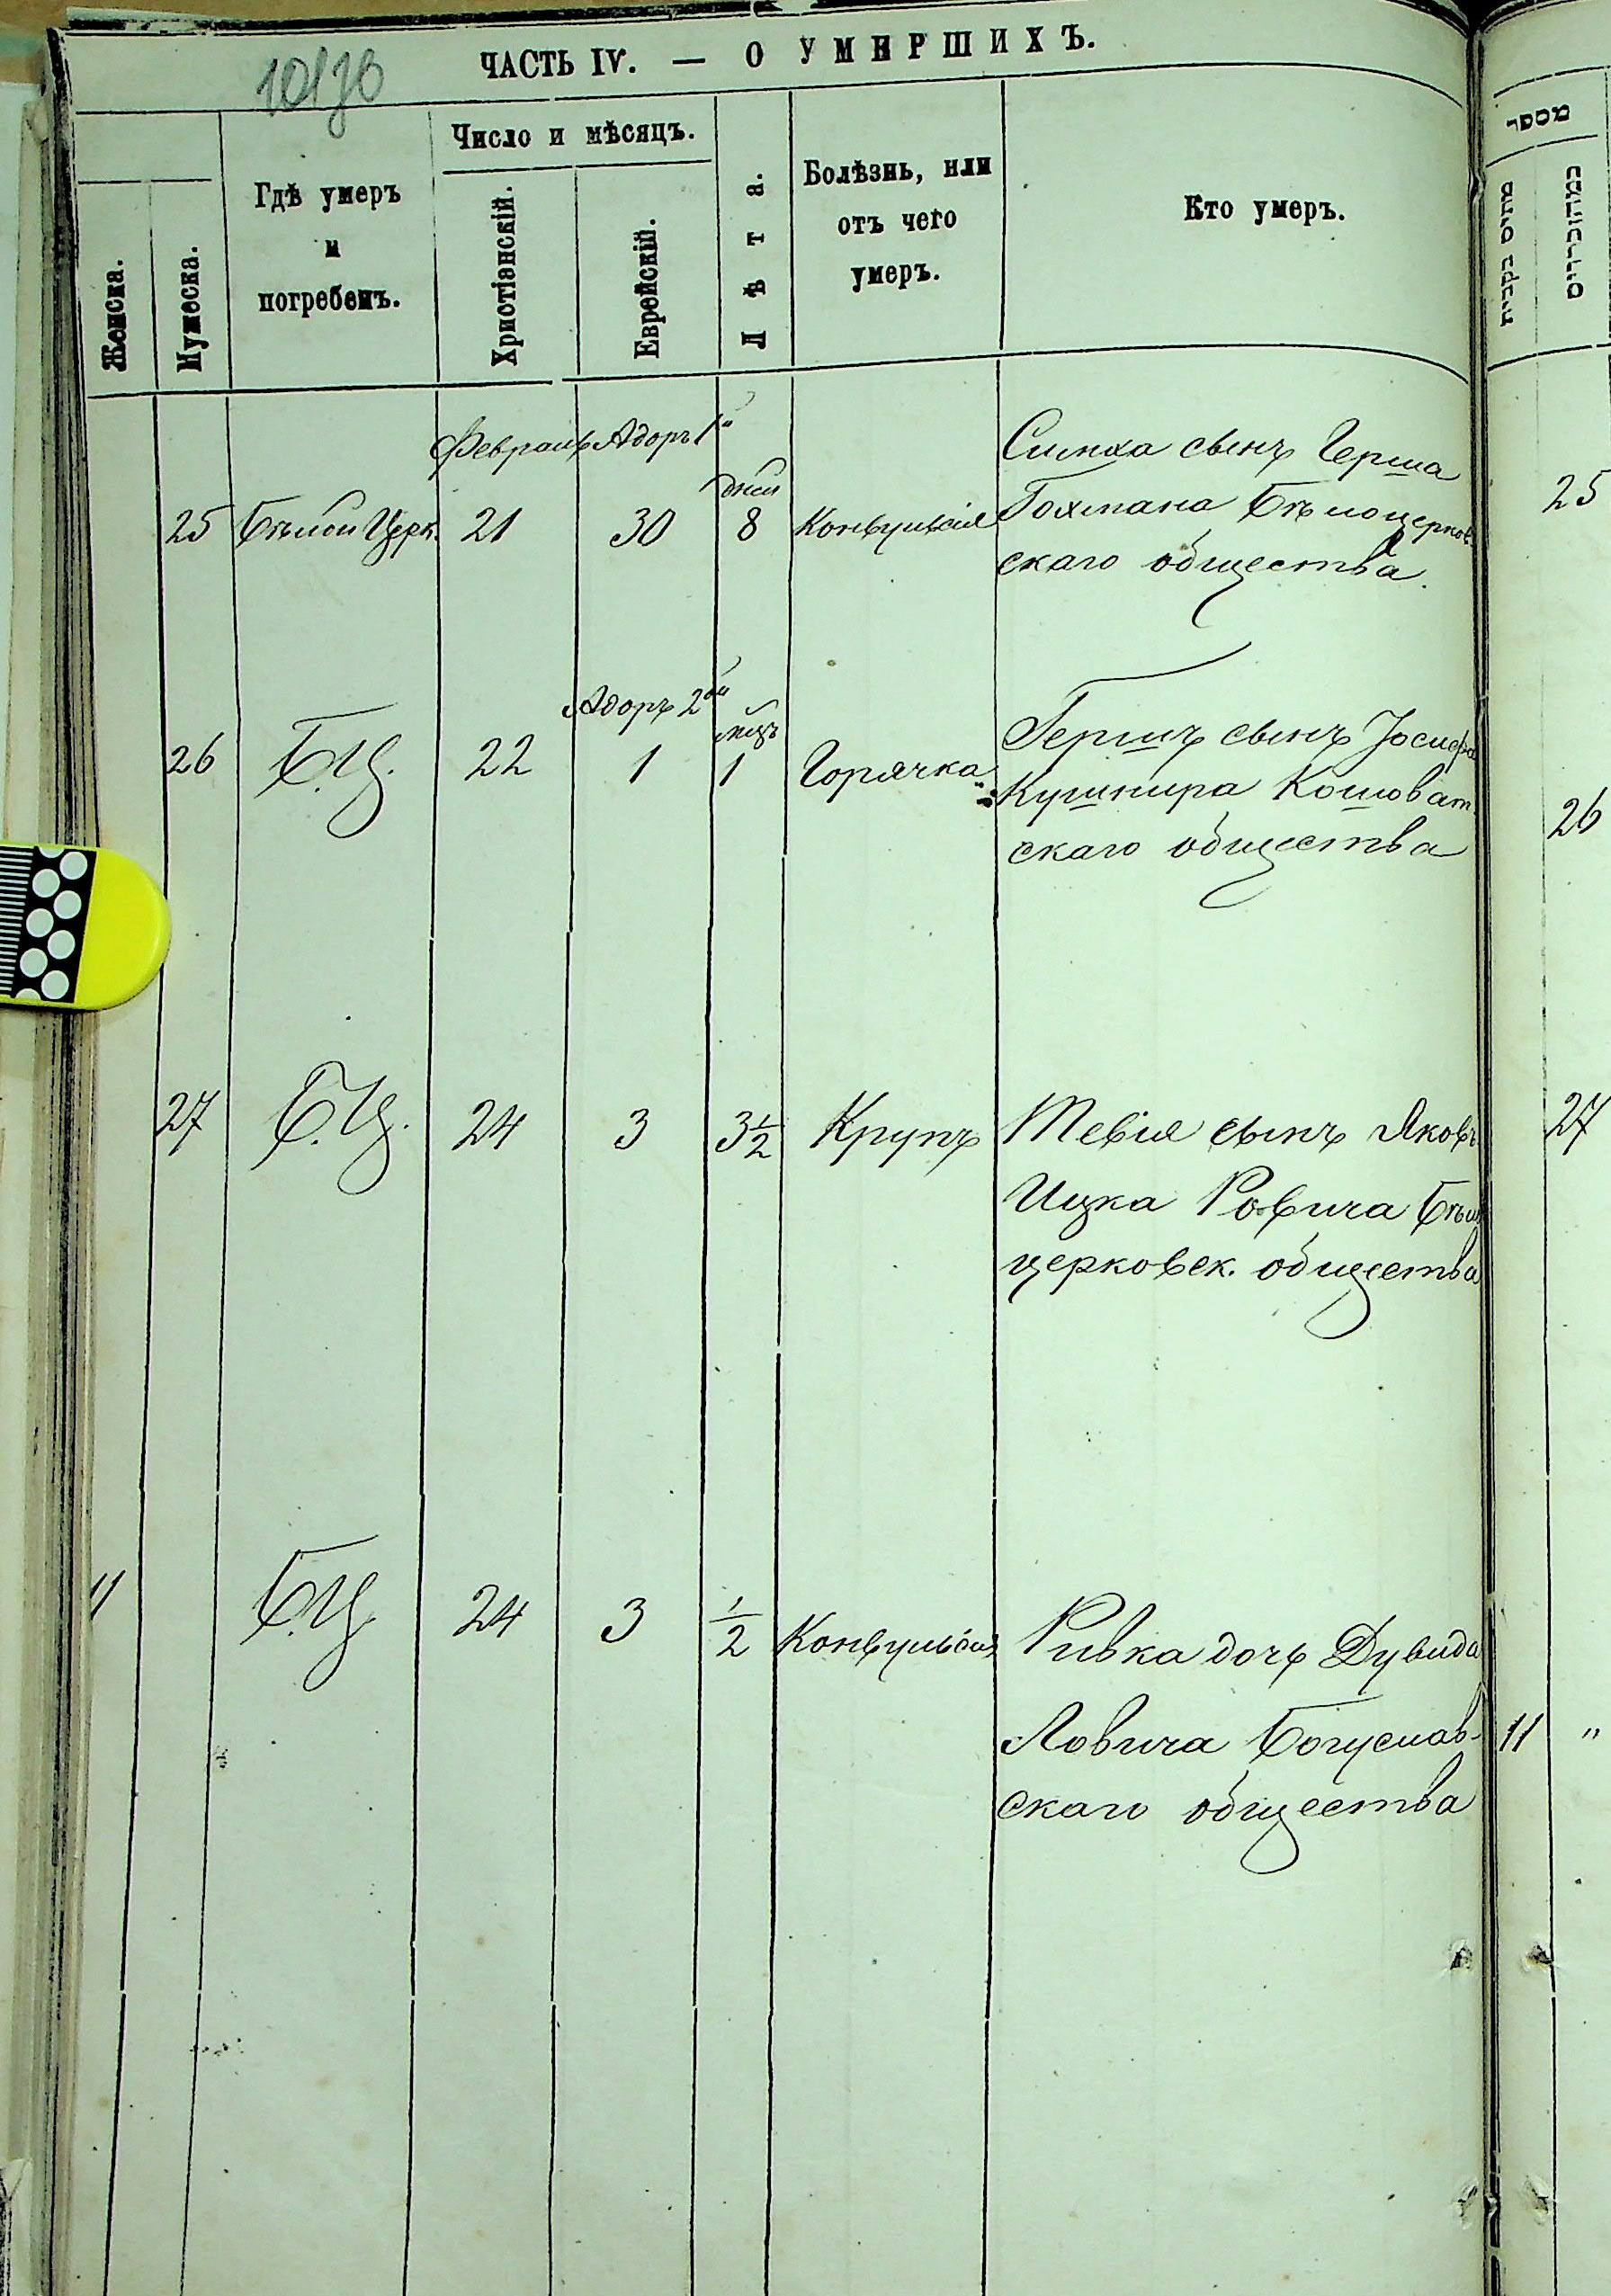 ЧАСТЬ IV. — О УМЕРШИХЪ.
Женска.
Мужеска.
Гдѣ умеръ
и
погребенъ.
Число и мѣсяцъ.
Христіанскій.
Еврейскій.
Лѣта.
Болѣзнь, или
отъ чего
умеръ.
Кто умеръ.
מספר
מתים נקבות
כמהזכרים
Февраль Адоръ 1й
дней
25 Бѣлой Церк. 21 30 8 Конвульсія
Симха сынъ Герша
Гохмана Бѣлоцерков-
скаго общества.
25
Адоръ 2ой
мѣц
26 Б.Ц. 22 1 1 Горячка
Гершъ сынъ Іосифа
Кушнира Кошоват
скаго общества
26
27 Б.Ц. 24 3 3½ Крупъ
Тевія сынъ Яковъ
Ицка Ровича Бѣло
церковск. общества
27
11 Б.Ц. 24 3 ½ Конвульсія
Ривка дочь Дувида
Ловича Богуслав-
скаго общества
11 "